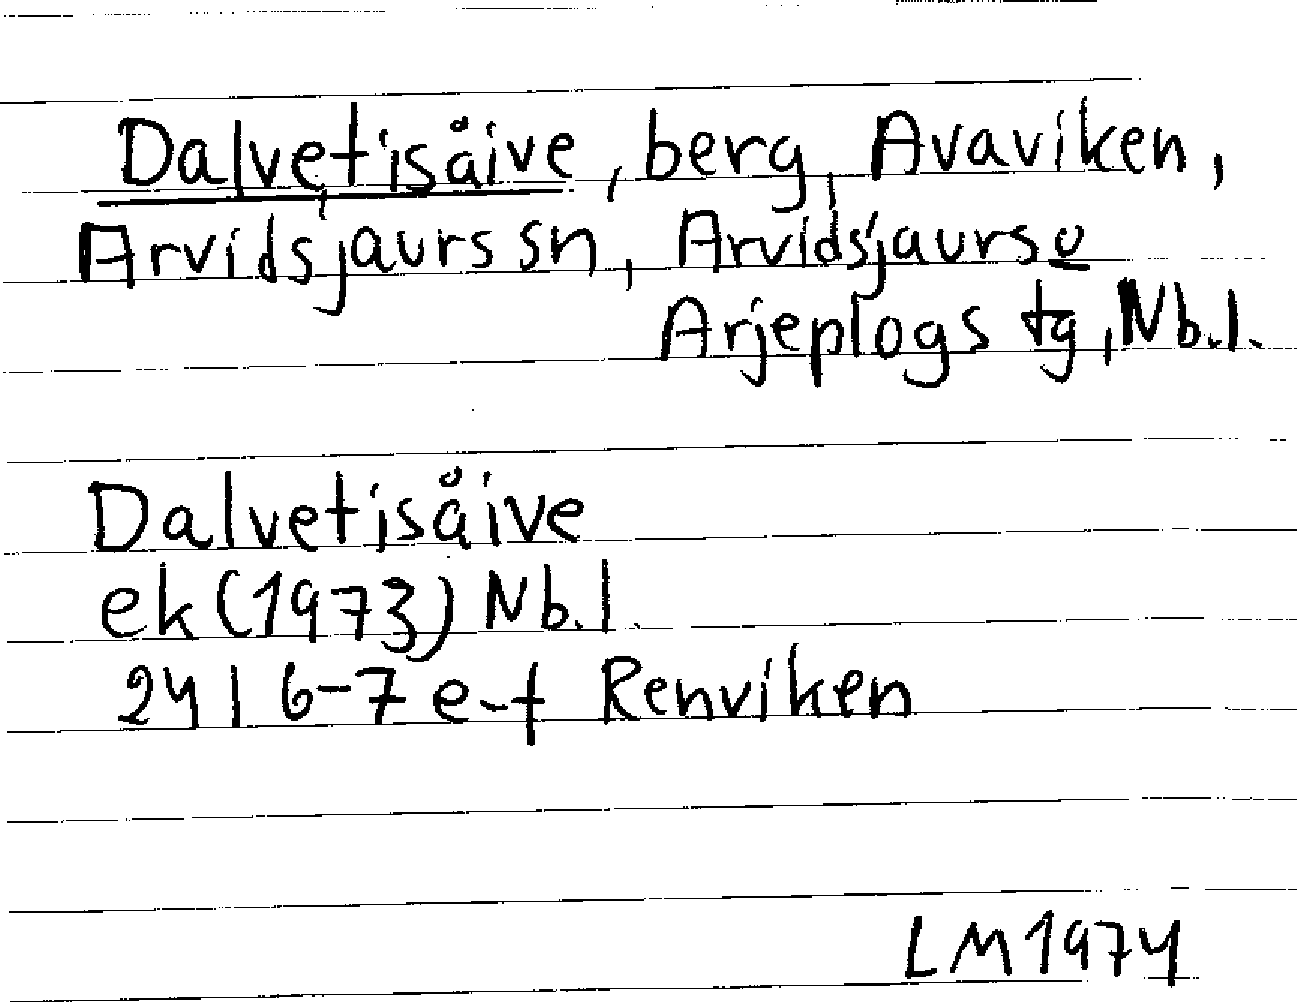 Dalvetisåive, berg, Avaviken,
Arvidsjaurs sn, Arvidsjaurs o
Arjeplogs tg, Nb.l.
Dalvetisåive
ek (1973) Nb.l.
24 I 6-7 e-f Renviken
LM 1974